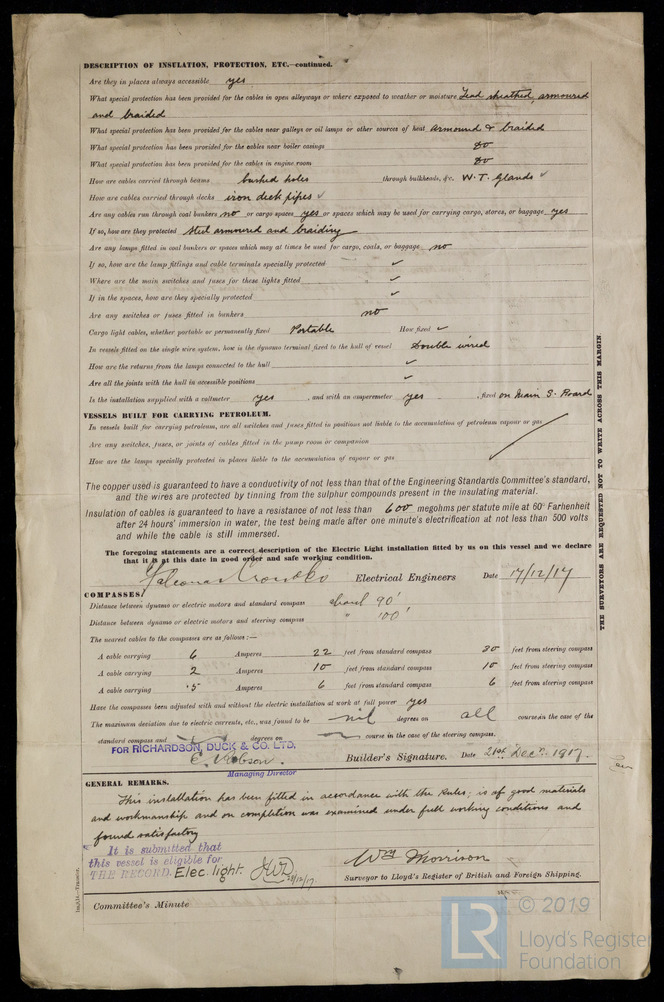 DESCRIPTION OF INSULATION, PROTECTION, ETC.—continued.
Are they in places always accessible yes
What special protection has been provided for the cables in open alleyways or where exposed to weather or moisture Lead sheathed, armoured
and braided
What special protection has been provided for the cables near galleys or oil lamps or other sources of heat armoured & braided
What special protection has been provided for the cables near boiler casings do
What special protection has been provided for the cables in engine room do
How are cables carried through beams bushed holes through bulkheads, &c. W.T. Glands ✓
How are cables carried through decks iron deck pipes ✓
Are any cables run through coal bunkers no or cargo spaces yes or spaces which may be used for carrying cargo, stores, or baggage yes
If so, how are they protected steel armoured and braiding
Are any lamps fitted in coal bunkers or spaces which may at times be used for cargo, coals, or baggage no
If so, how are the lamp fittings and cable terminals specially protected ✓
Where are the main switches and fuses for these lights fitted ✓
If in the spaces, how are they specially protected ✓
Are any switches or fuses fitted in bunkers no
Cargo light cables, whether portable or permanently fixed Portable How fixed ✓
In vessels fitted on the single wire system, how is the dynamo terminal fixed to the hull of vessel Double wired
How are the returns from the lamps connected to the hull ✓
Are all the joints with the hull in accessible positions ✓
Is the installation supplied with a voltmeter yes, and with an amperemeter yes, fixed on Main S. Board
VESSELS BUILT FOR CARRYING PETROLEUM.
In vessels built for carrying petroleum, are all switches and fuses fitted in positions not liable to the accumulation of petroleum vapour or gas
Are any switches, fuses, or joints of cables fitted in the pump room or companion
How are the lamps specially protected in places liable to the accumulation of vapour or gas
The copper used is guaranteed to have a conductivity of not less than that of the Engineering Standards Committee's standard,
and the wires are protected by tinning from the sulphur compounds present in the insulating material.
Insulation of cables is guaranteed to have a resistance of not less than 600 megohms per statute mile at 60° Farhenheit
after 24 hours' immersion in water, the test being made after one minute's electrification at not less than 500 volts
and while the cable is still immersed.
The foregoing statements are a correct description of the Electric Light installation fitted by us on this vessel and we declare
that it is at this date in good order and safe working condition.
Electrical Engineers Date 17/12/17
COMPASSES:
Distance between dynamo or electric motors and standard compass about 90'
Distance between dynamo or electric motors and steering compass " 100'
The nearest cables to the compasses are as follows:—
A cable carrying 6 Amperes 22 feet from standard compass 20 feet from steering compass
A cable carrying 2 Amperes 10 feet from standard compass 10 feet from steering compass
A cable carrying ·5 Amperes 6 feet from standard compass 6 feet from steering compass
Have the compasses been adjusted with and without the electric installation at work at full power yes
The maximum deviation due to electric currents, etc., was found to be nil degrees on all course in the case of the
standard compass and degrees on course in the case of the steering compass.
FOR RICHARDSON, DUCK & CO. LTD.
E. Robson. Builder's Signature. Date 21st Decr. 1917.
Managing Director
GENERAL REMARKS.
This installation has been fitted in accordance with the Rules; is of good materials
and workmanship and on completion was examined under full working conditions and
found satisfactory
It is submitted that
this vessel is eligible for
THE RECORD. Elec. light.
Wm Morrison
Surveyor to Lloyd's Register of British and Foreign Shipping.
Committee's Minute
THE SURVEYORS ARE REQUESTED NOT TO WRITE ACROSS THIS MARGIN.
LR © 2019
Lloyd's Register
Foundation